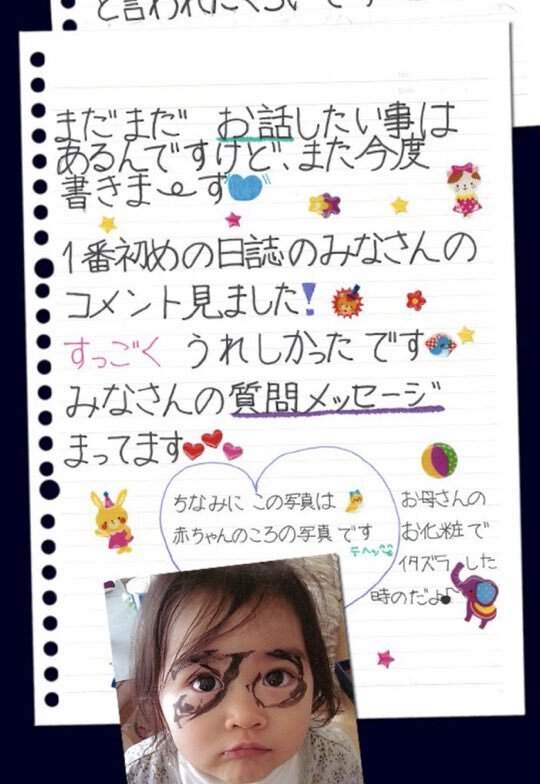 と言われたくらいです
まだまだ お話したい事は
あるんですけど、また今度
書きま〜す
1番初めの日誌のみなさんの
コメント見ました!
すっごく うれしかったです
みなさんの質問メッセージ
まってます
ちなみに この写真は
赤ちゃんのころの写真です
テヘッ
お母さんの
お化粧で
イタズラ した
時のだよ♪